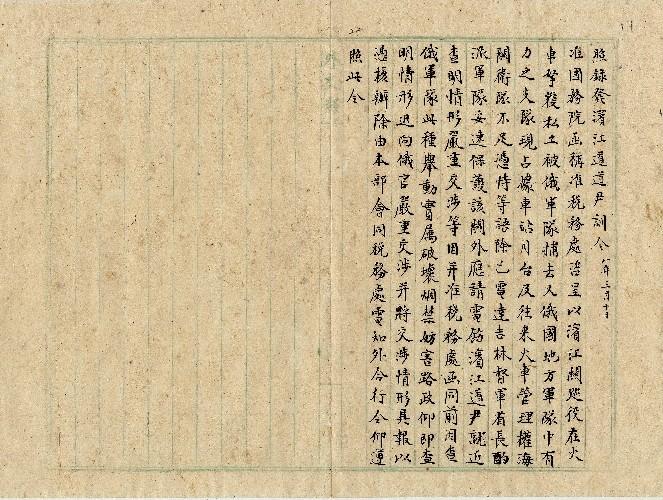 照錄發濱江道道尹訓令 八年三月十日
准國務院函稱准稅務處咨呈以濱江關巡役在火
車拏獲私土被俄軍隊捕去又俄國地方軍隊中有
力之支隊現占據車站月台及往來火車管理權海
關衛隊不足憑恃等語除已電達吉林督軍省長酌
派軍隊妥速保護該關外應請電飭濱江道尹就近
查明情形嚴重交涉等因并准稅務處函同前因查
俄軍隊此種舉動實屬破壞烟禁妨害路政仰即查
明情形迅向俄官嚴重交涉并將交涉情形具報以
憑核辦除由本部會同稅務處電知外合行令仰遵
照此令